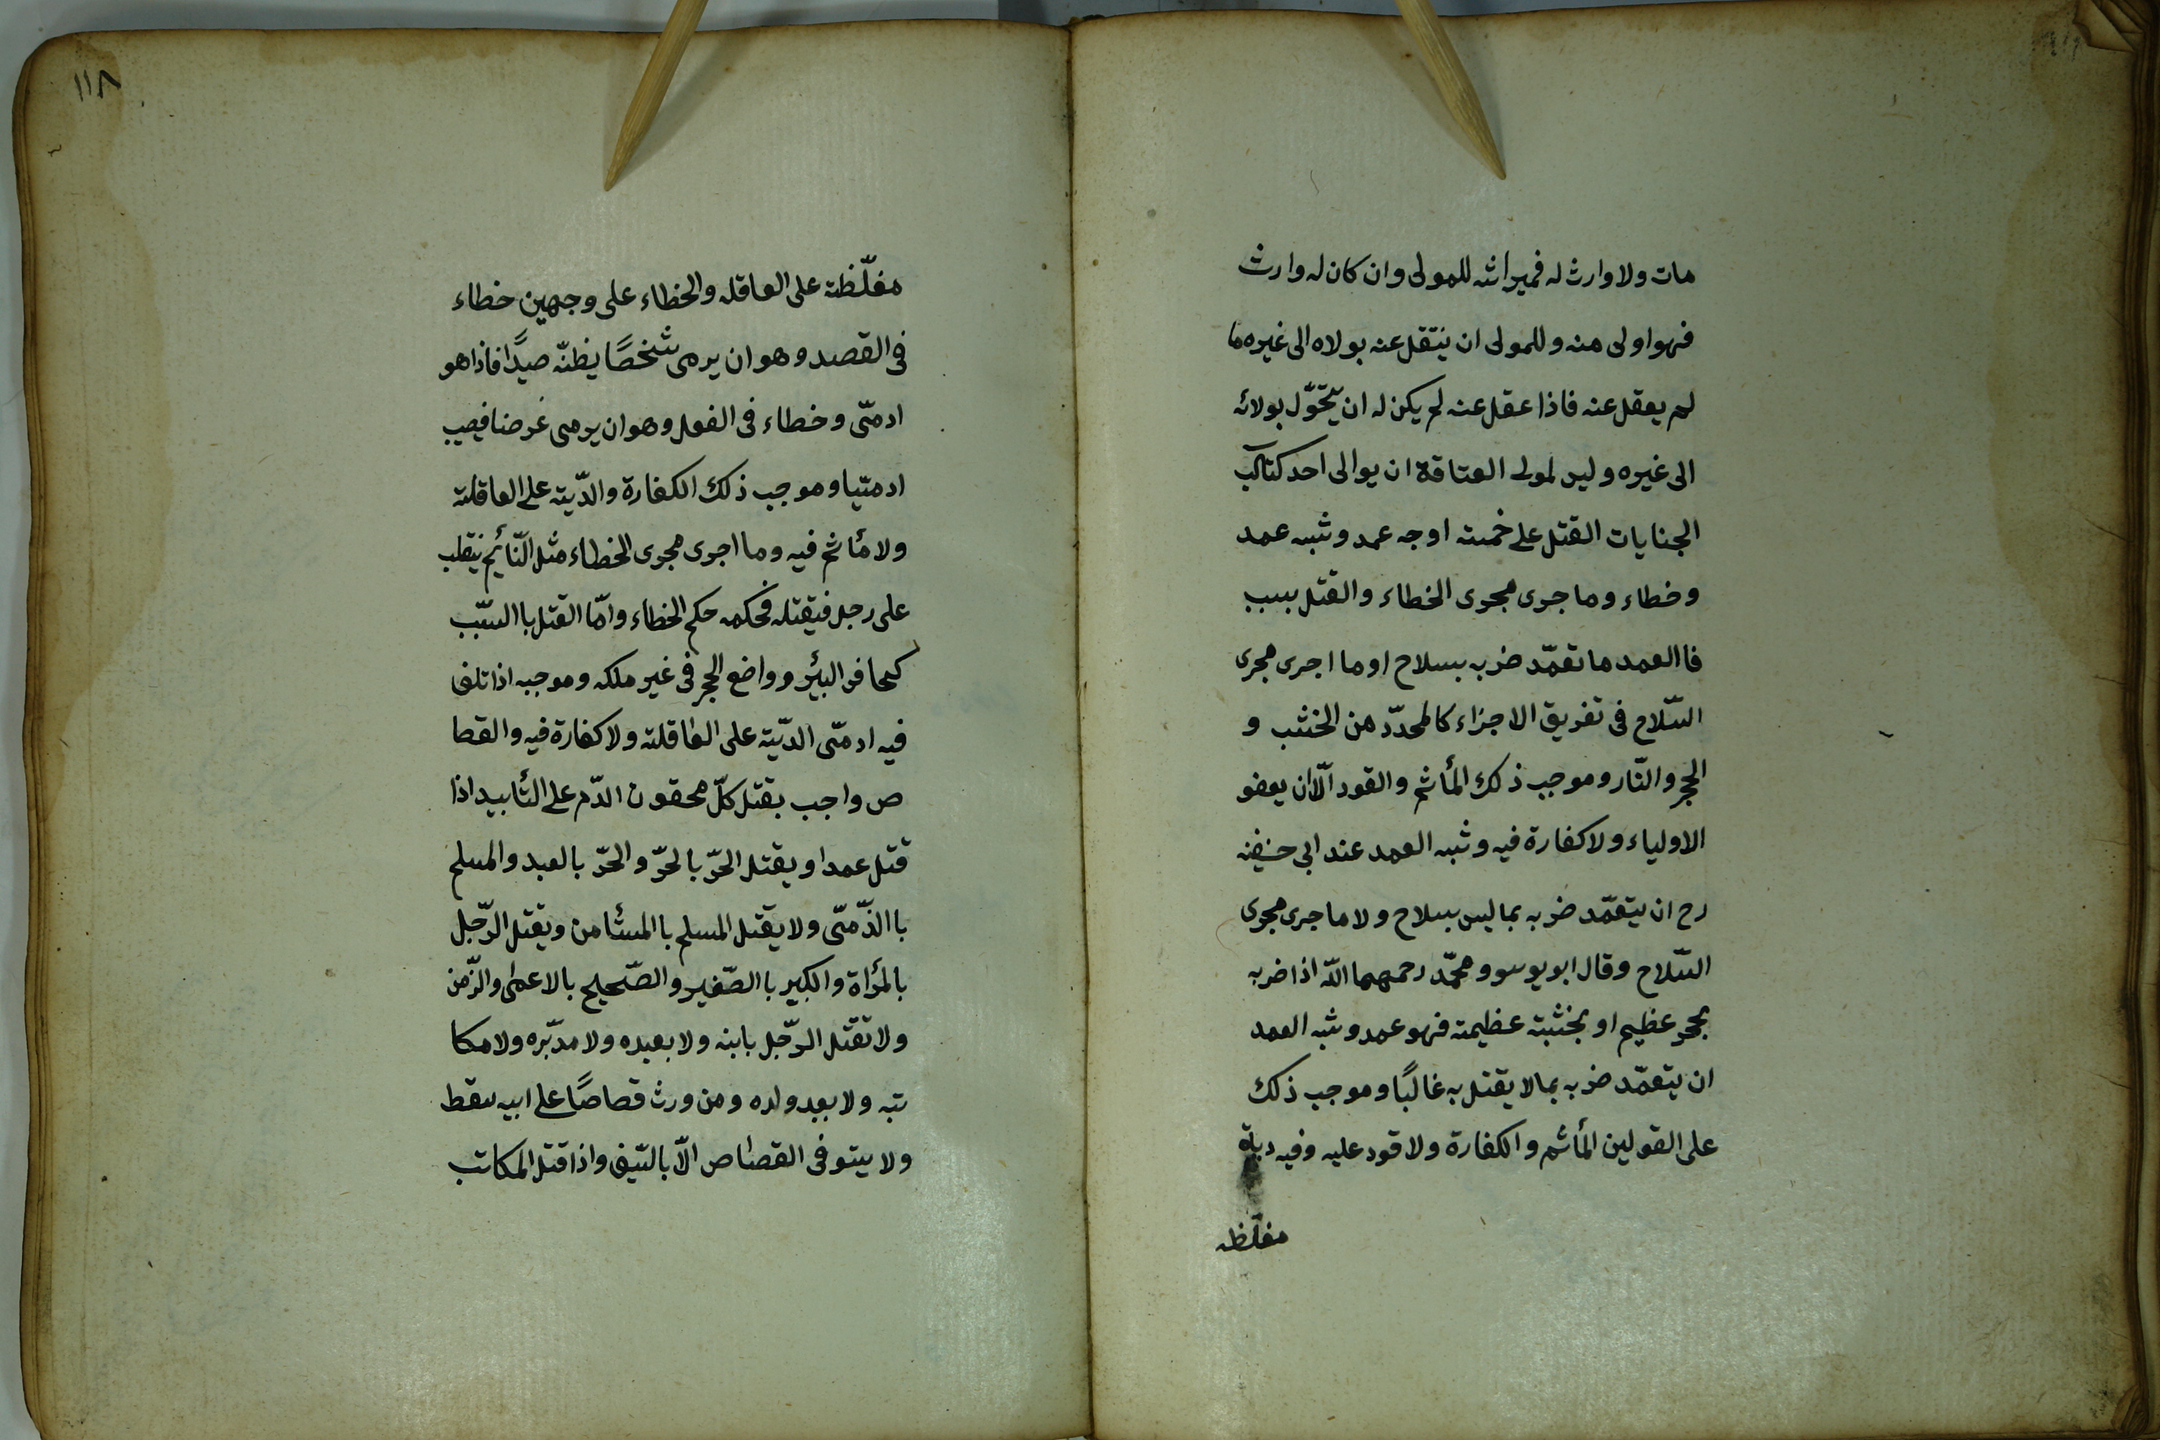 مات ولا وارث له فميراثه للمولى وان كان له وارث
فهو اولى منه وللمولى ان ينتقل عنه بولاه الى غيره ما
لم يعقل عنه فاذا عقل عنه لم يكن له ان يتحوّل بولائه
الى غيره وليس لمولى العتاقة ان يوالى احد كتاب
الجنايات القتل على خمسة اوجه عمد وشبه عمد
وخطاء وما جرى مجرى الخطاء والقتل بسبب
فاالعمد ما تعمّد ضربه بسلاح او ما اجرى مجرى
السّلاح فى تفريق الاجزاء كالمحدّد من الخشب و
الحجر والنّار وموجب ذلك المأثم والقود الّا ان يعفو
الاولياء ولا كفارة فيه وشبه العمد عند ابى حنيفه
رح ان يتعمّد ضربه بما ليس بسلاح ولا ما جرى مجرى
السّلاح وقال ابو يوسو ومحمّد رحمهما اللّه اذا ضربه
بحجر عظيم او بخشبة عظيمة فهو عمد وشبه العمد
ان يتعمّد ضربه بما لا يقتل به غالبًا وموجب ذلك
على القولين المأثم والكفارة ولا قود عليه وفيه دية
مغلّظه
١١٨
مغلّظة على العاقله والخطاء على وجهين خطاء
فى القصد وهو ان يرمى شخصًا يظنّه صيدًا فاذا هو
ادمىّ وخطاء فى الفعل وهو ان يرمى غرضا فيصيب
ادميا وموجب ذلك الكفارة والدّية على العاقلة
ولا مأثم فيه وما اجرى مجرى الخطاء مثل النّائم ينقلب
على رجل فيقتله فحكمه حكم الخطاء وامّا القتل باالسّبب
كحافر البئر وواضع الحجر فى غير ملكه وموجبه اذا تلف
فيه ادمىّ الدّية على العاقلة ولا كفارة فيه والقصا
ص واجب بقتل كلّ محقون الدّم على التّأبيد اذا
قتل عمدا ويقتل الحرّ بالحرّ والحرّ بالعبد والمسلم
باالذّمىّ ولا يقتل المسلم باالمستأمن ويقتل الرّجل
بالمرأة والكبير باالصّغير والصّحيح بالاعمى والزّمن
ولا تقتل الرّجل بابنه ولا بعبده ولا مدبّره ولا مكا
تبه ولا بعبد ولده ومن ورث قصاصًا على ابيه سقط
ولا يستوفى القصاص الّا بالسّيف واذا قتل المكاتب